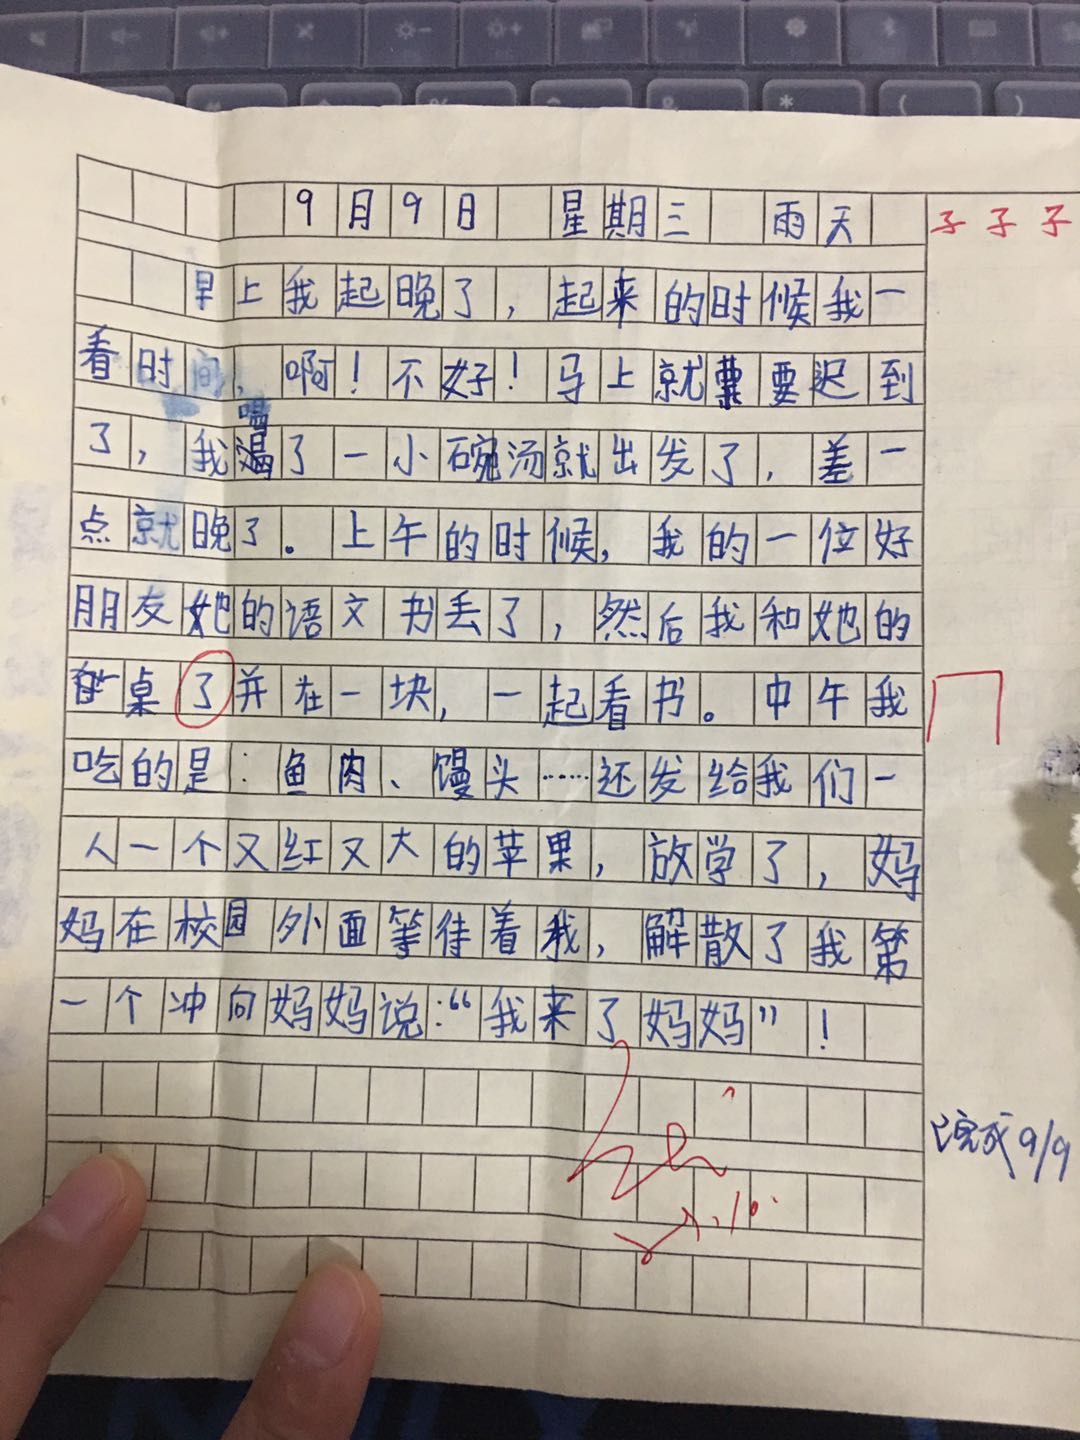 9月9日 星期三 雨天
子子子
早上我起晚了，起来的时候我一
看时间，啊！不好！马上就要迟到
了，我喝了一小碗汤就出发了，差一
点就晚了。上午的时候，我的一位好
朋友她的语文书丢了，然后我和她的
桌了并在一块，一起看书。中午我
吃的是：鱼肉、馒头……还发给我们一
人一个又红又大的苹果，放学了，妈
妈在校园外面等待着我，解散了我第
一个冲向妈妈说：“我来了妈妈”！
已完成9/9
9.10.